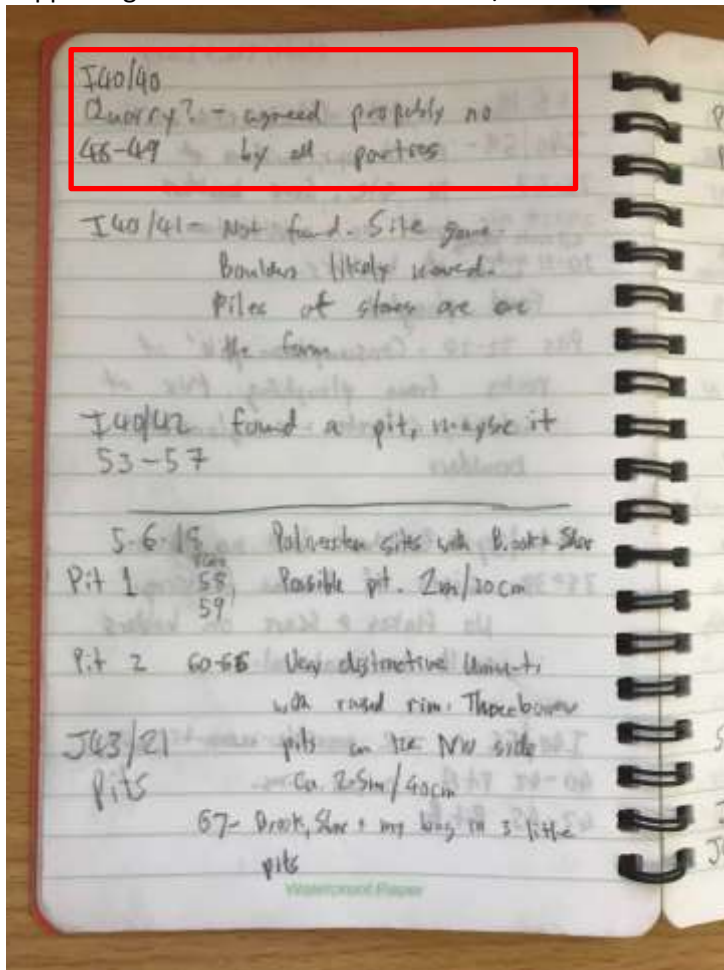 I40/40
Quarry? - agreed propebly no
46-49 by all parties
I40/41 - Not found. Site gone.
Boulders likely moved.
Piles of stones are on
the farm
I40/42 found a pit, maybe it
53-57
5-6-15 sites with Brook + Shar
Pit 1 58, Possible pit. 2m/20cm
59
Pit 2 60-66 Very distinctive
with raised rim. Three
J43/21 pits on the NW side
Pits Ca. 2.5m/40cm
67- Brook, Shar + my bag in 3 little
pits
Waterproof Paper